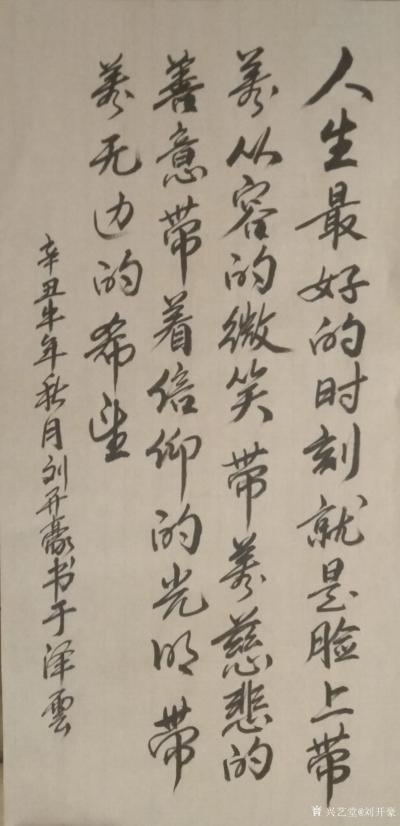 人生最好的时刻就是脸上带
着从容的微笑带着慈悲的
善意带着信仰的光明带
着无边的希望
辛丑牛年秋月刘开豪书于泽雲
兴艺堂@刘开豪